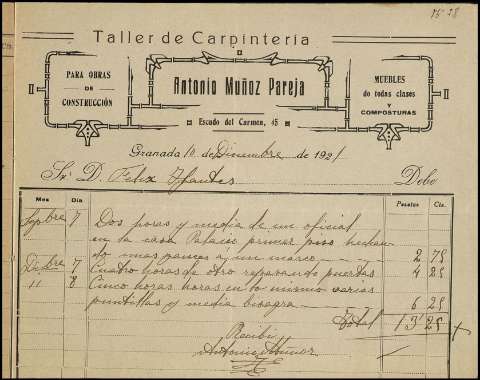 15'28
Taller de Carpintería
PARA OBRAS
DE
CONSTRUCCIÓN
Antonio Muñoz Pareja
Escudo del Carmen, 45
MUEBLES
de todas clases
Y
COMPOSTURAS
Granada 10 de Diciembre de 1921
Sr. D. Felix Ifantes Debe
Mes Dia Pesetas Cts.
7 Dos horas y media de un oficial
en la casa Palacio primer piso
do unos a un marco 2 75
Dbre 7 Cuatro horas de otro repasando puertas 4 25
11 8 Cinco horas horas en lo mismo varias
puntillas y media bisagra 6 25
Total 13'25
Recibí
Antonio Muñoz